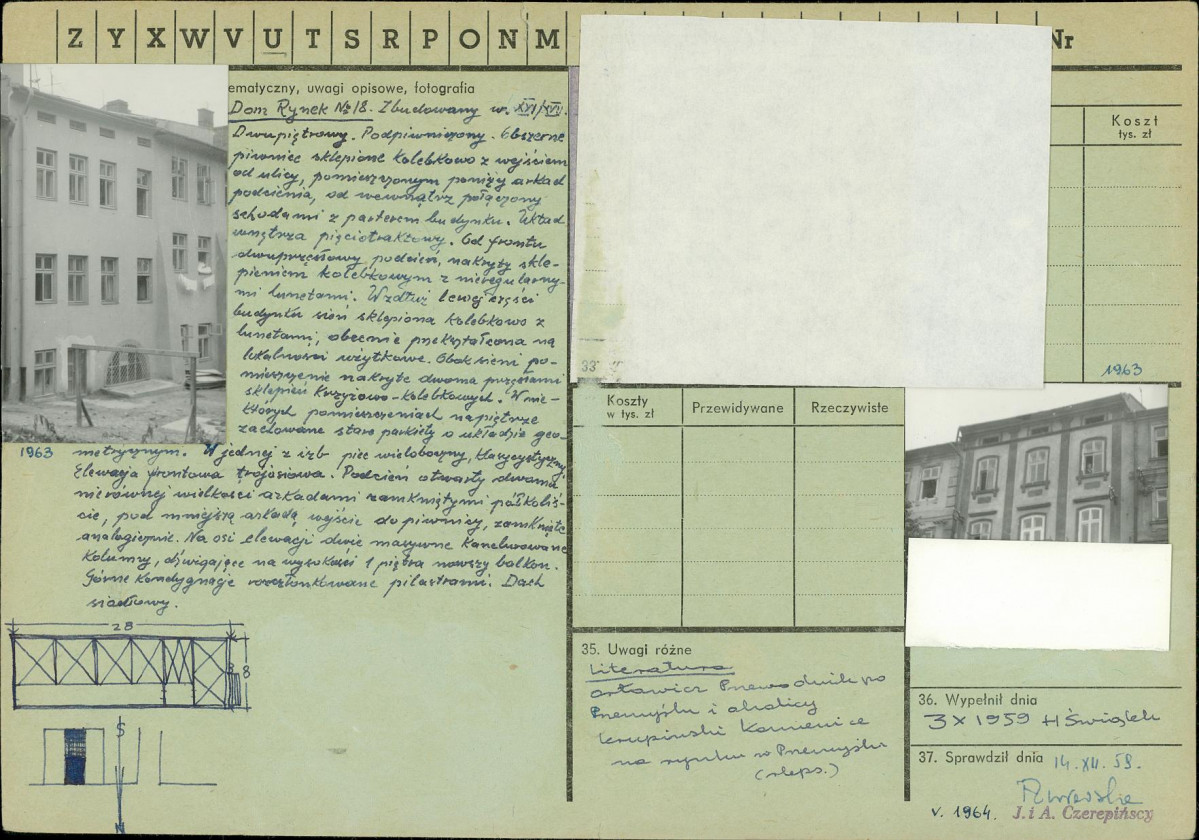 Z Y X W V U T S R P O N M
Nr
ematyczny, uwagi opisowe, fotografia
Dom Rynek No 18. Zbudowany w. XVI/XVII.
Dwupiętrowy. Podpiwniczony. Obszerne
piwnice sklepione kolebkowo z wejściem
od ulicy, pomieszczonym poniżej arkad
podcienia, od wewnątrz połączony
schodami z parterem budynku. Układ
wnętrza pięciotraktowy. Od frontu
dwuprzęsłowy podcień, nakryty skle-
pieniem kolebkowym z nieregularny-
mi lunetami. Wzdłuż lewej części
budynku sień sklepiona kolebkowo z
lunetami, obecnie przekształcona na
lokalności użytkowe. Obok sieni po-
mieszczenie nakryte dwoma przęsłami
sklepień krzyżowo-kolebkowych. W nie-
których pomieszczeniach na piętrze
zachowane stare parkiety o układzie geo-
metrycznym. W jednej z izb piec wieloboczny, klasycystyczny.
Elewacja frontowa trójosiowa. Podcień otwarty dwoma
nierównej wielkości arkadami zamkniętymi półkoliś-
cie, pod mniejszą arkadą wejście do piwnicy, zamknięte
analogicznie. Na osi elewacji dwie masywne kanelurowane
kolumny, dźwigające na wysokości 1 piętra nowszy balkon.
Górne kondygnacje rozczłonkowane pilastrami. Dach
siodłowy.
1963
28
8
S
N
33
Koszt
tys. zł
1963
Koszty
w tys. zł
Przewidywane
Rzeczywiste
35. Uwagi różne
Literatura
Orłowicz Przewodnik po
Przemyślu i okolicy
Krupiński Kamienice
na rynku w Przemyślu
(maps.)
36. Wypełnił dnia
3 X 1959 H Świątek
37. Sprawdził dnia
14. XII. 59.
v. 1964. J. i A. Czerepińscy